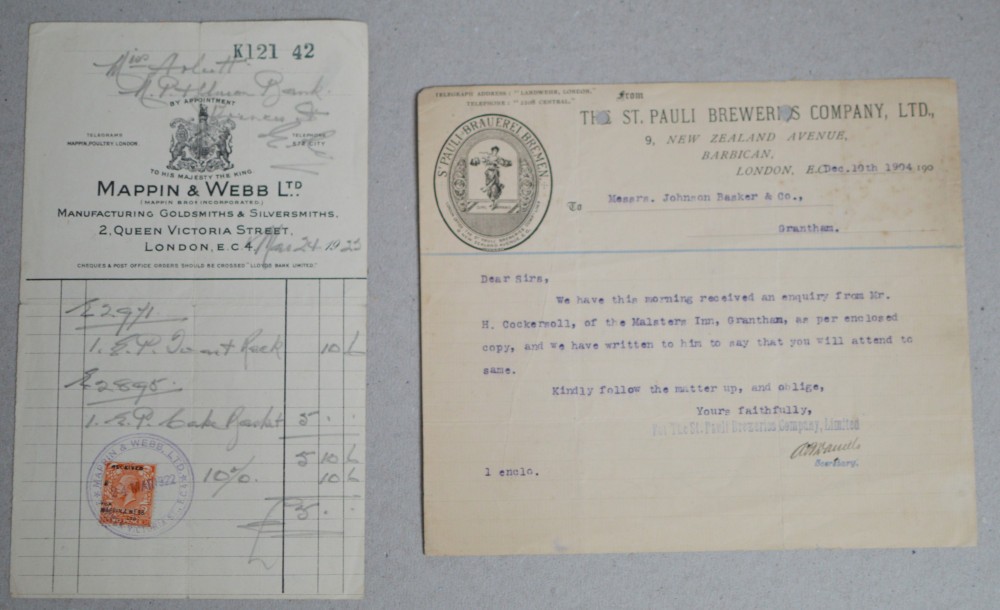 K121 42
Miss
Bank
BY APPOINTMENT
TELEGRAMS
MAPPIN, POULTRY LONDON
TELEPHONE
572 CITY
TO HIS MAJESTY THE KING
MAPPIN & WEBB LTD
(MAPPIN BROS INCORPORATED)
MANUFACTURING GOLDSMITHS & SILVERSMITHS.
2, QUEEN VICTORIA STREET,
LONDON, E.C 4. Mar 24 1922
CHEQUES & POST OFFICE ORDERS SHOULD BE CROSSED "LLOYDS BANK LIMITED."
E2971
1. E.P. Toast Rack 10 6
E2895
1 E.P. Cake Basket 5 . .
5 10 6
10% 10 6
£5 . .
MAPPIN & WEBB LTD
MAR 1922
MAPPIN & WEBB
LTD
TELEGRAPH ADDRESS: "LANDWEHR, LONDON."
TELEPHONE: CENTRAL."
From
THE ST. PAULI BREWERIES COMPANY, LTD.,
9, NEW ZEALAND AVENUE,
BARBICAN,
LONDON, E.C. Dec. 10th 1904 190
ST PAULI-BRAUEREI BREMEN
To Messrs. Johnson Basker & Co.,
Grantham.
Dear Sirs,
We have this morning received an enquiry from Mr.
H. Cockersoll, of the Malsters Inn, Grantham, as per enclosed
copy, and we have written to him to say that you will attend to
same.
Kindly follow the matter up, and oblige,
Yours faithfully,
For The St. Pauli Breweries Company, Limited
Secretary.
1 enclo.